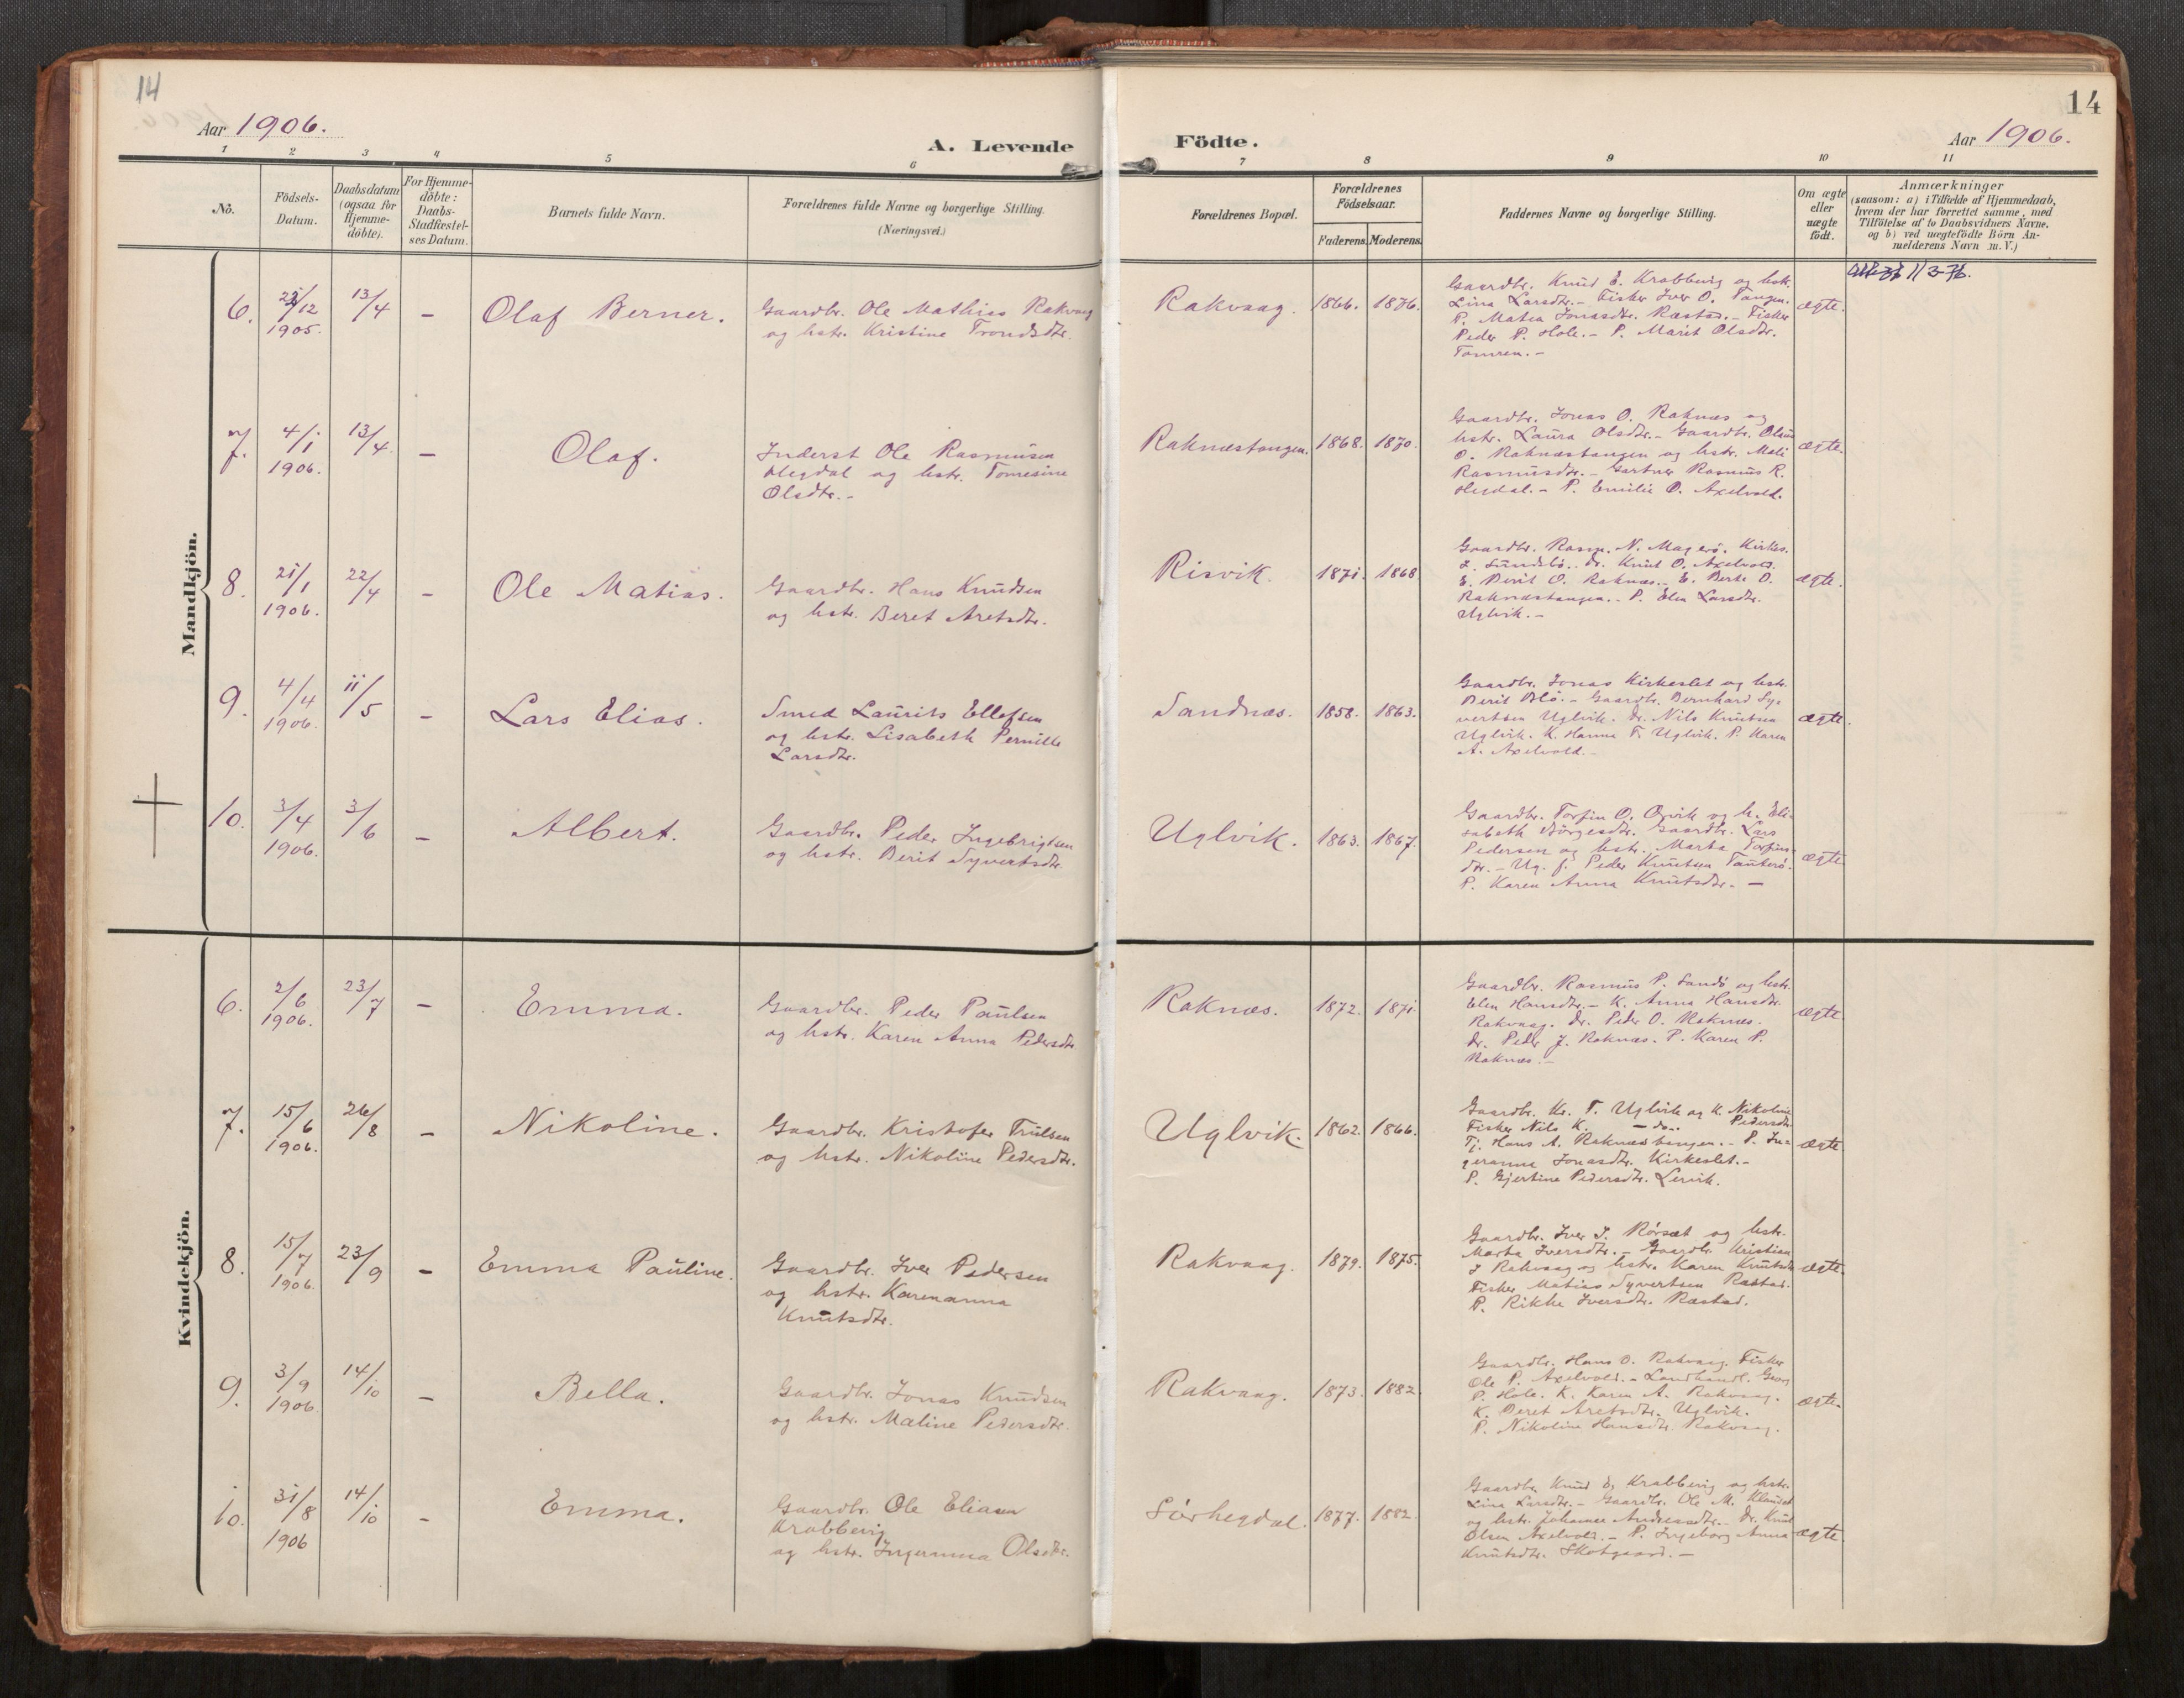 14
14
Aar 1906.
A. Levende Födte.
Aar 1906.
1 2 3 4 5 6 7 8 9 10 11
No.
Födsels-
Datum.
Daabsdatum
(ogsaa for
Hjemme-
döbte).
For Hjemme-
döbte:
Daabs-
Stadfæstel-
ses Datum.
Barnets fulde Navn.
Forældrenes fulde Navne og borgerlige Stilling.
(Næringsvei.)
Forældrenes Bopæl.
Forældrenes
Födselsaar.
Faderens. Moderens.
Faddernes Navne og borgerlige Stilling.
Om ægte
eller
uægte
födt.
Anmærkninger
(saasom: a) i Tilfælde af Hjemmedaab,
hvem der har forrettet samme, med
Tilföielse af to Daabsvidners Navne,
og b) ved uægtefödte Börn An-
melderens Navn m. V.)
Mandkjön.
6.
/12
1905.
13/4
-
Olaf Berner.
Gaardbr. Ole Mathias Rakvaag
og hstr. Kristine Trondsdtr.
Rakvaag.
1866. 1876.
Gaardbr. Knud E. Krabbevig og hstr.
Lina Larsdtr. - Fisker Iver O. Tangen.
P. Matea Jonasdtr. Ræstad. - Fisker
Peder P. Hole. - P. Marit Olsdtr.
Tomren. -
ægte.
11/3-76.
7.
4/1
1906.
13/4
-
Olaf.
Inderst Ole Rasmusen
Hegdal og hstr. Tomesine
Olsdtr. -
Raknæstangen.
1868. 1870.
Gaardbr. Jonas O. Raknæs og
hstr. Laura Olsdtr. - Gaardbr. Olaus
O. Raknæstangen og hstr. Mali
Rasmusdtr. - Gartner Rasmus R.
Hegdal. - P. Emilie O. Axelvold.
ægte.
8.
21/1
1906.
22/4
-
Ole Matias.
Gaardbr. Hans Knudsen
og hstr. Beret Aretsdtr.
Risvik.
1871. 1868
Gaardbr. Rasm. N. Magerö. Kirkes.
L. Sundsbö. Dr. Knut O. Axelvold.
E. Berit O. Raknæs. - E. Berte O.
Raknæstangen. - P. Elen Larsdtr.
Uglvik. -
ægte.
9.
4/4
1906.
11/5
-
Lars Elias.
Smed Laurits Ellefsen
og hstr. Lisabeth Pernille
Larsdtr.
Sandnæs.
1858. 1863.
Gaardbr. Jonas Kirkeslet og hstr.
Berit Blö. - Gaardbr. Bernhard Sy-
vertsen Uglvik. Dr. Nils Knutsen
Uglvik. K. Hanna T. Uglvik. P. Karen
A. Axelvold. -
ægte.
10.
3/4
1906.
3/6
-
Albert.
Gaardbr. Peder Ingebrigtsen
og hstr. Berit Syvertsdtr.
Uglvik.
1863. 1867.
Gaardbr. Torfin O. Orvik og h. Eli-
sabeth Börgesdtr. Gaardbr. Lars
Pedersen og hstr. Marta Torfins-
dtr. - Ug. f. Peder Knutsen Tauterö.
P. Karen Anna Knutsdtr. -
ægte
Kvindekjön.
6.
2/6
1906.
23/7
-
Emma.
Gaardbr. Peder Paulsen
og hstr. Karen Anna Pedersdtr.
Raknæs.
1872. 1871.
Gaardbr. Rasmus P. Sandö og hstr.
Elen Hansdtr. - K. Anna Hansdtr.
Rakvaag. Dr. Peder O. Raknæs.
Dr. Peder J. Raknæs. P. Karen P.
Raknæs. -
ægte.
7.
15/6
1906.
26/8
-
Nikoline.
Gaardbr. Kristofer Trulsen
og hstr. Nikoline Pedersdtr.
Uglvik.
1862. 1866.
Gaardbr. Kr. T. Uglvik og K. Nikoline
Fisker Nils K. - do. Pedersdtr.
Tj. Hans A. Raknæstangen. - P. In-
geranna Jonasdtr. Kirkeslet. -
P. Gjertine Pedersdtr. Lervik.
ægte.
8.
15/7
1906.
23/9
-
Emma Pauline.
Gaardbr. Iver Pedersen
og hstr. Karenanna
Knutsdtr.
Rakvaag.
1879. 1875.
Gaardbr. Iver J. Rörsæt og hstr.
Marta Iversdtr. - Gaardbr. Kristian
J Rakvaag og hstr. Karen Knutsdtr
Fisker Matias Syvertsen Ræstad.
P. Rikke Iversdtr. Ræstad.
ægte.
9.
3/9
1906.
14/10
-
Bella.
Gaardbr. Jonas Knudsen
og hstr. Maline Pedersdtr.
Rakvaag.
1873. 1882.
Gaardbr. Hans O. Rakvaag. Fisker
Ole P. Axelvold. - Landhandl. Georg
P. Hole. K. Karen A. Rakvaag.
K. Beret Aretsdtr. Uglvik.
P. Nikoline Hansdtr. Rakvaag.
ægte.
10.
31/8
1906
14/10
-
Emma.
Gaardbr. Ole Eliasen
Krabbevig
og hstr. Ingeranna Olsdtr.
Sörhegdal.
1877. 1882.
Gaardbr. Knud E. Krabbevig og hstr.
Lina Larsdtr. - Gaardbr. Ole M. Klauset
og hstr. Johanna Andreasdtr. - Dr. Knut
Olsen Axelvold. - P. Ingeborg Anna
Knutsdtr. Skotgaard. -
ægte.